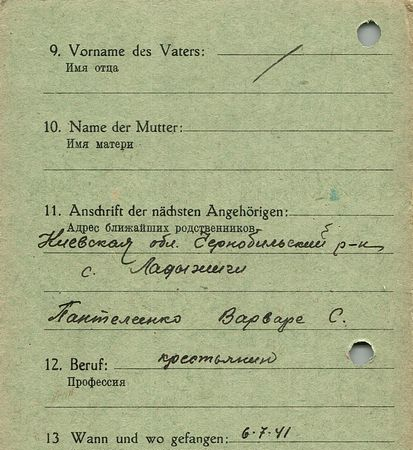 9. Vorname des Vaters: /
Имя отца
10. Name der Mutter:
Имя матери
11. Anschrift der nächsten Angehörigen:
Адрес ближайших родственников
Киевская обл. Чернобильский р-н
с. Ладыжичи
Пантелеенко Варваре С.
12. Beruf: крестьянин
Профессия
13 Wann und wo gefangen: 6.7.41